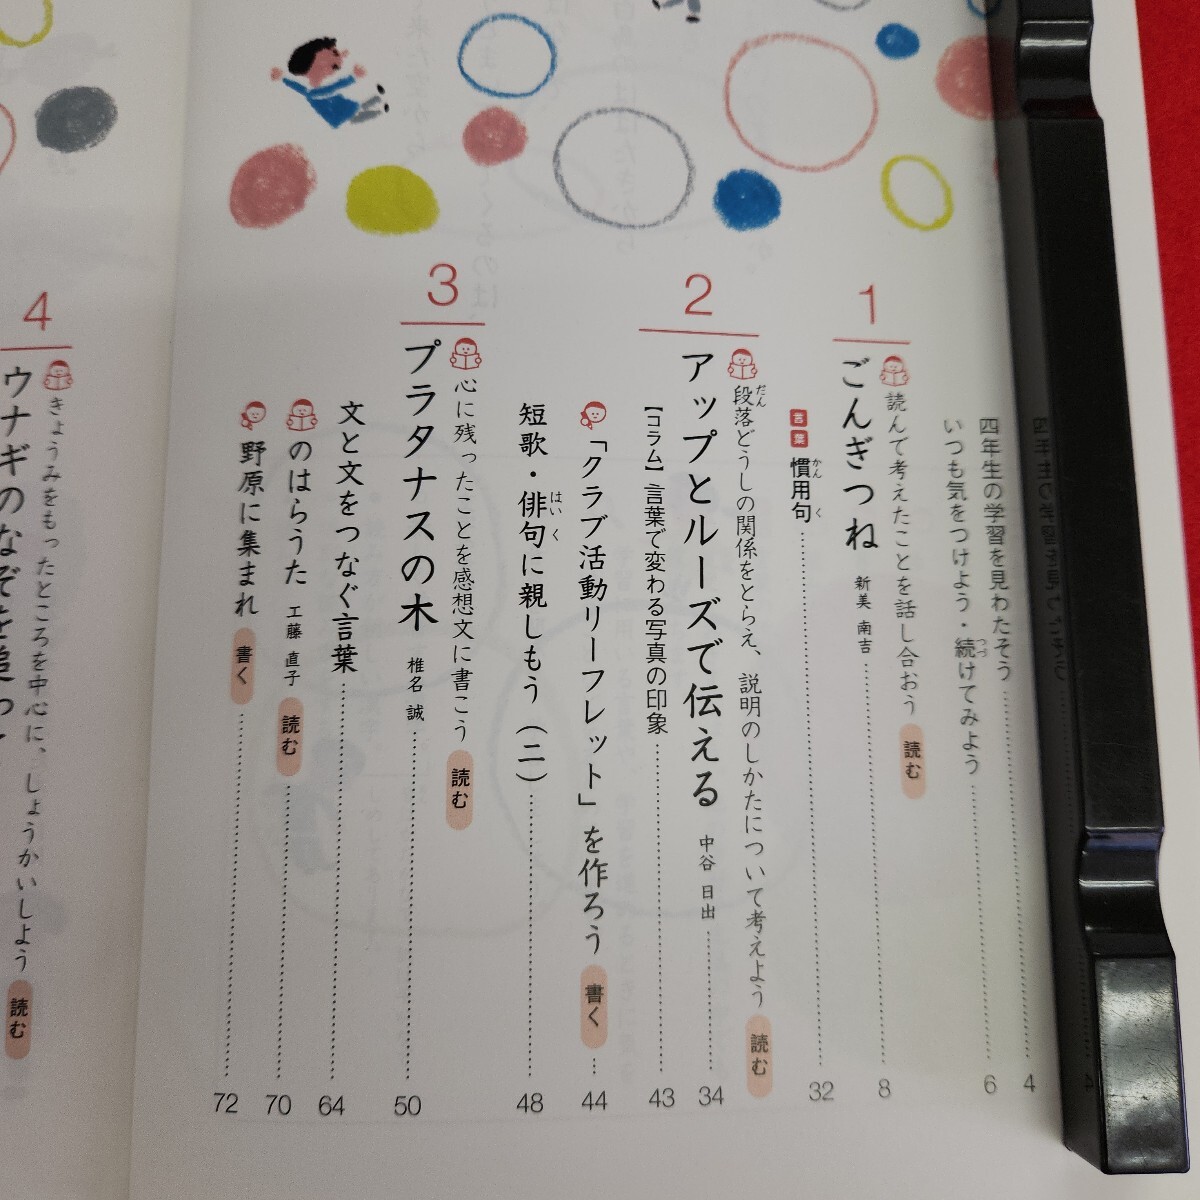 四年生の学習を見わたそう 4
いつも気をつけよう・続けてみよう 6
つづ
1
読んで考えたことを話し合おう 読む
ごんぎつね 新美 南吉 8
言葉 慣用句 32
かん く
2
段落どうしの関係をとらえ、説明のしかたについて考えよう 読む
だん
アップとルーズで伝える 中谷 日出 34
【コラム】言葉で変わる写真の印象 43
「クラブ活動リーフレット」を作ろう 書く 44
短歌・俳句に親しもう(二) 48
はい く
3
心に残ったことを感想文に書こう 読む
プラタナスの木 椎名 誠 50
文と文をつなぐ言葉 64
のはらうた 工藤 直子 読む 70
野原に集まれ 書く 72
4
きょうみをもったところを中心に、しょうかいしよう 読む
ウナギのなぞを追っ